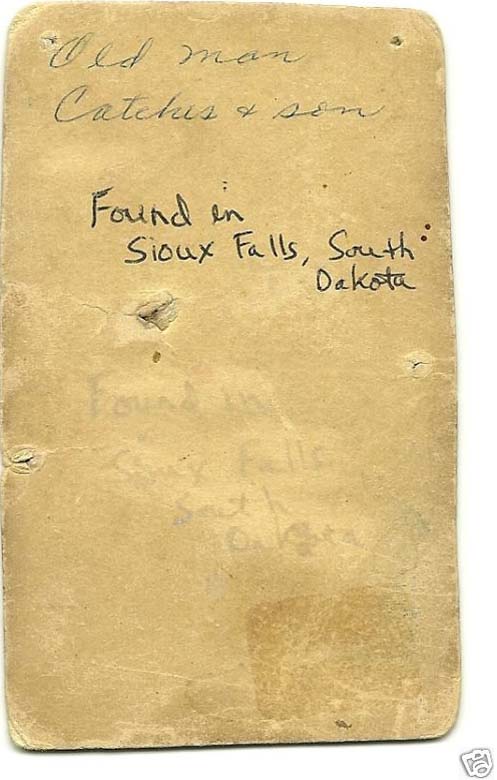 Old man
Catches & son
Found in
Sioux Falls, South
Dakota
Found in
Sioux Falls
South
Dakota